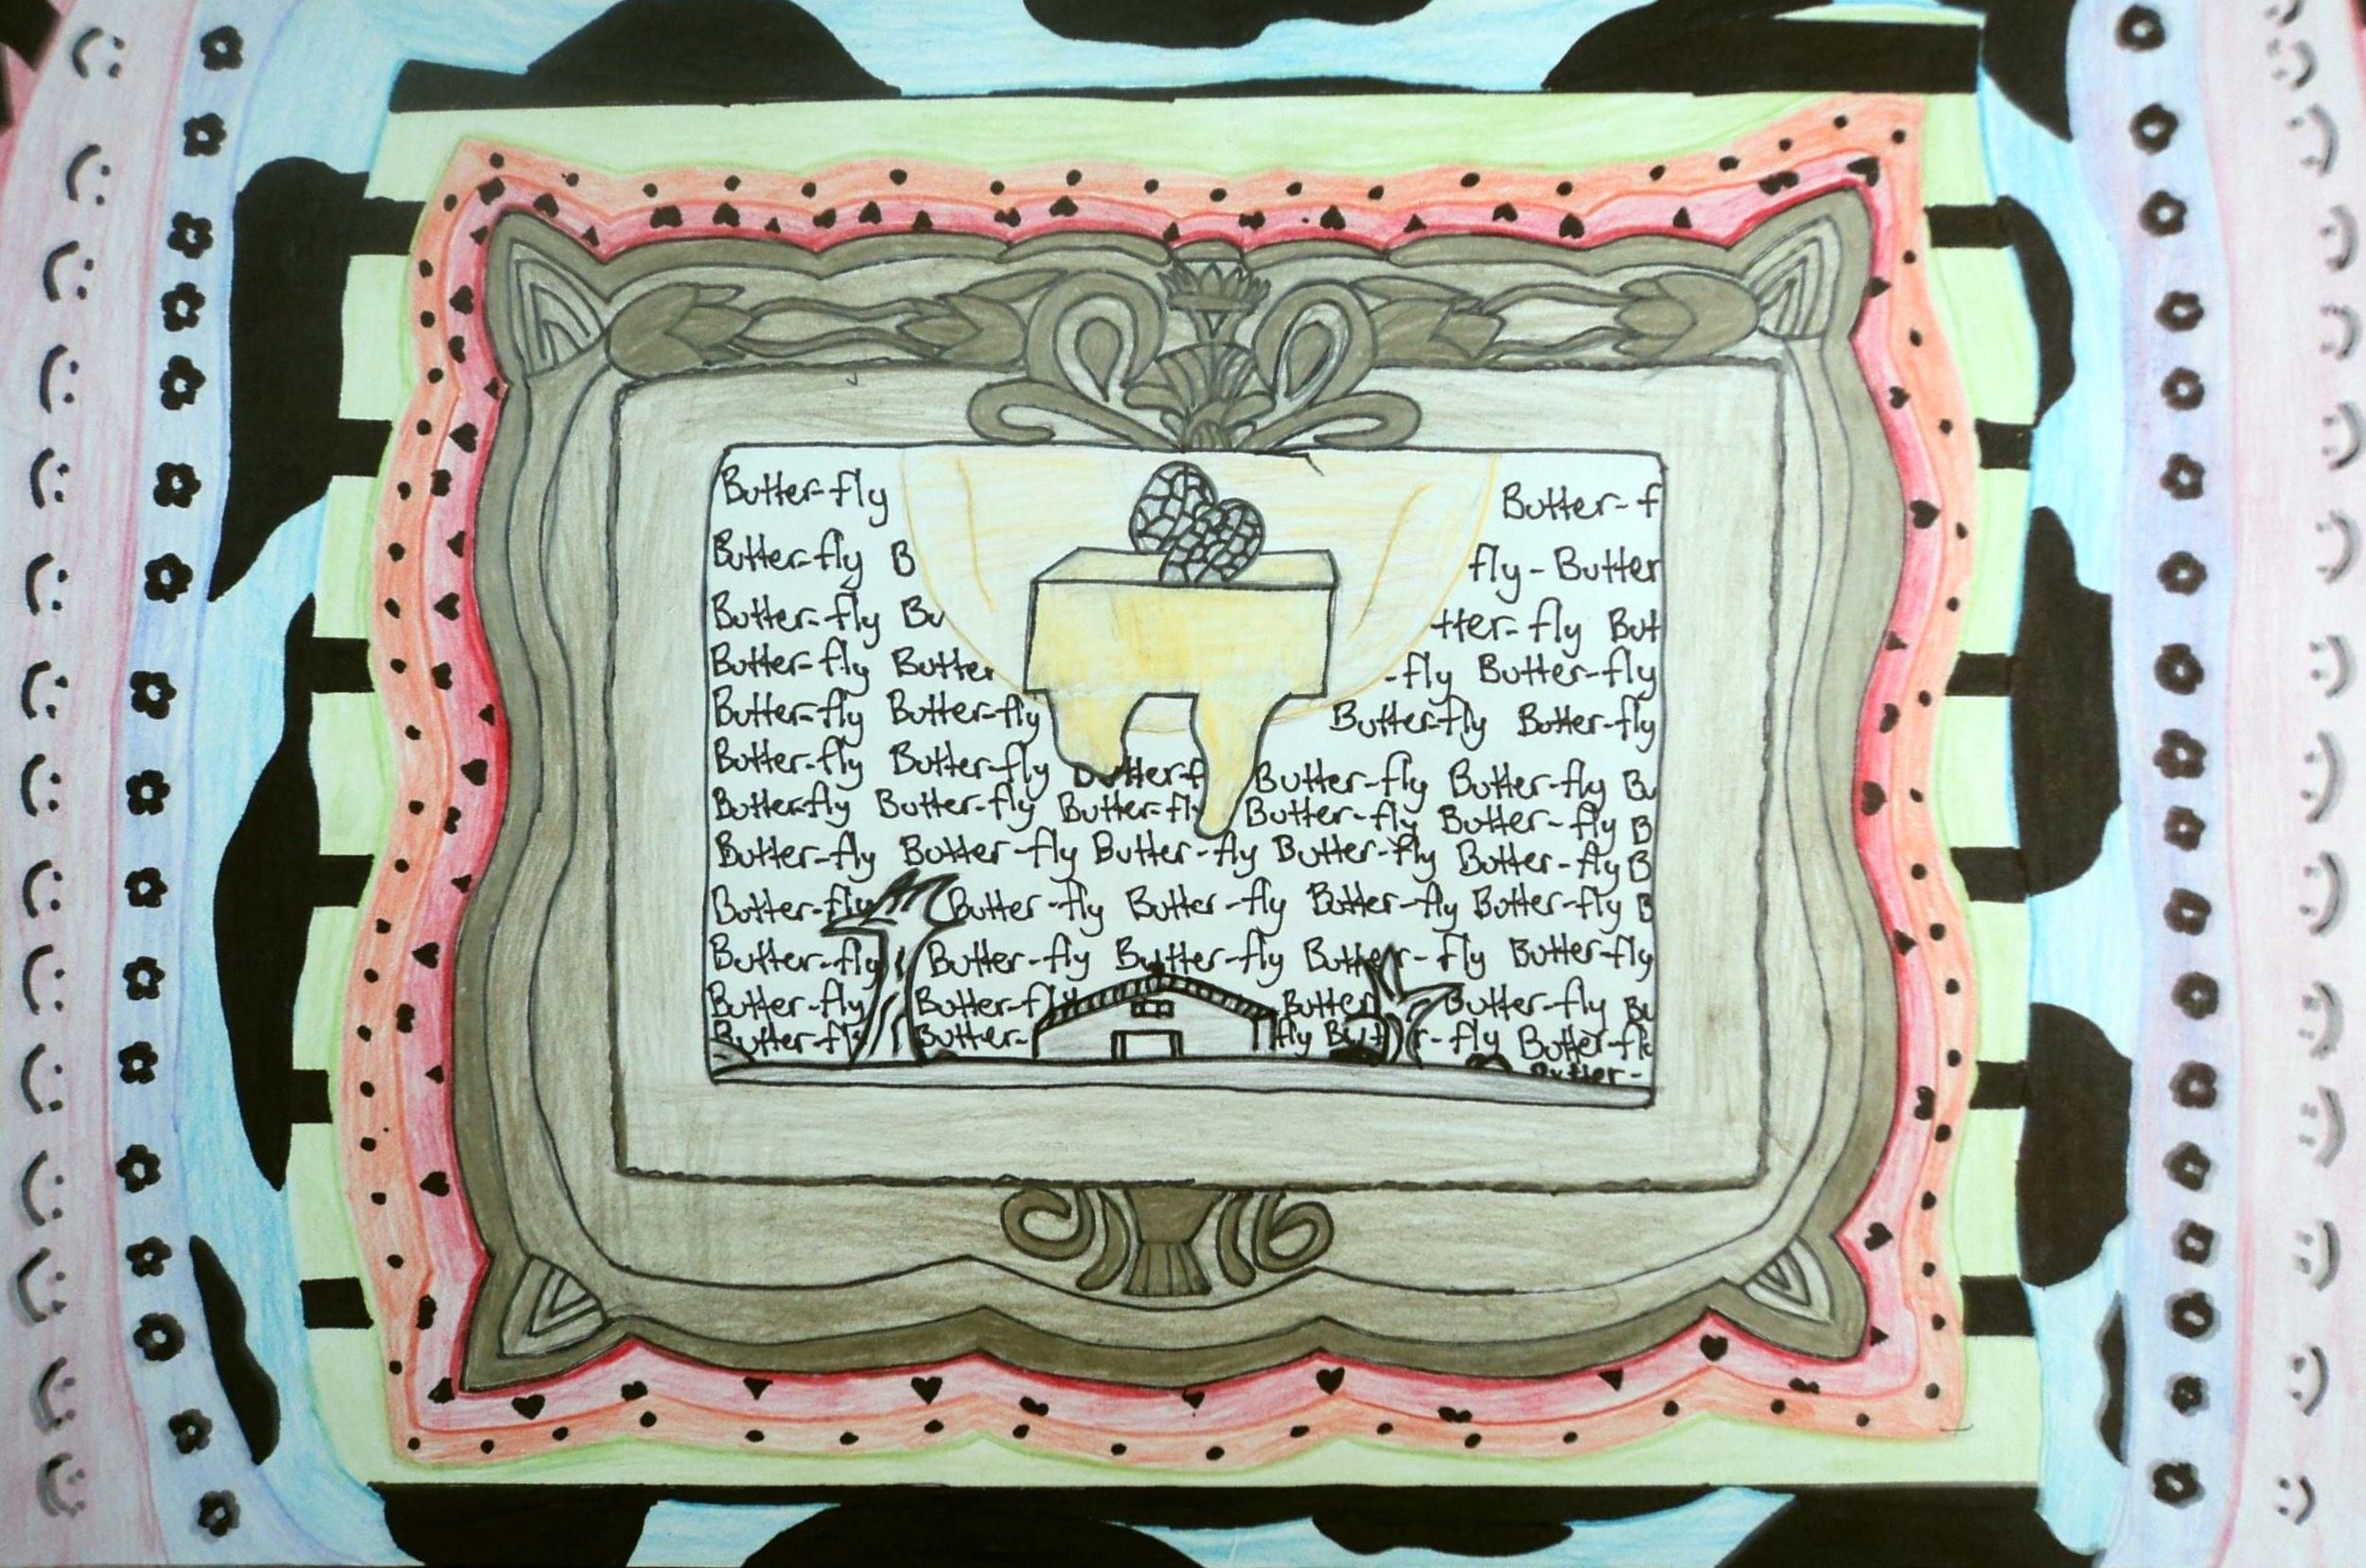 Butter-fly Butter-f
Butter-fly B fly-Butter
Butter-fly Bu tter-fly But
Butter-fly Butter -fly Butter-fly
Butter-fly Butter-fly Butter-fly Butter-fly
Butter-fly Butter-fly Butter-f Butter-fly Butter-fly Bu
Butter-fly Butter-fly Butter-fly Butter-fly Butter-fly B
Butter-fly Butter-fly Butter-fly Butter-fly Butter-fly B
Butter-fly Butter-fly Butter-fly Butter-fly Butter-fly B
Butter-fly Butter-fly Butter-fly Butter-fly Butter-fly
Butter-fly Butter-fly Butter Butter-fly Bu
Butter-fly Butter- fly But r-fly Butter-fly
Butter-